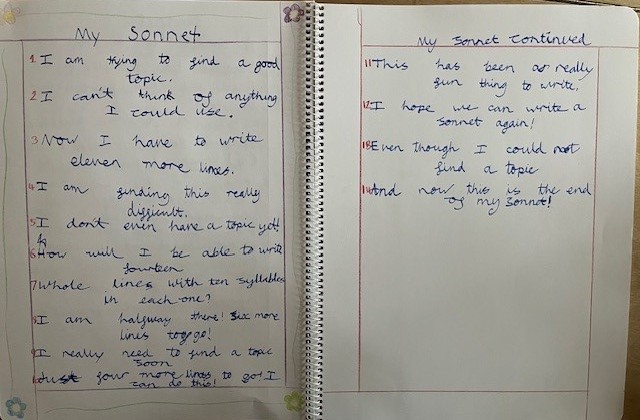 My Sonnet
1 I am trying to find a good
topic.
2 I can't think of anything
I could use.
3 Now I have to write
eleven more lines.
4 I am finding this really
difficult.
5 I don't even have a topic yet!
6 How will I be able to write
fourteen
7 Whole lines with ten syllables
in each one?
8 I am halfway there! Six more
lines to go!
9 I really need to find a topic
soon
10 Just four more lines to go! I
can do this!
My Sonnet Continued
11 This has been a really
fun thing to write.
12 I hope we can write a
sonnet again!
13 Even though I could not
find a topic
14 And now this is the end
of my sonnet!